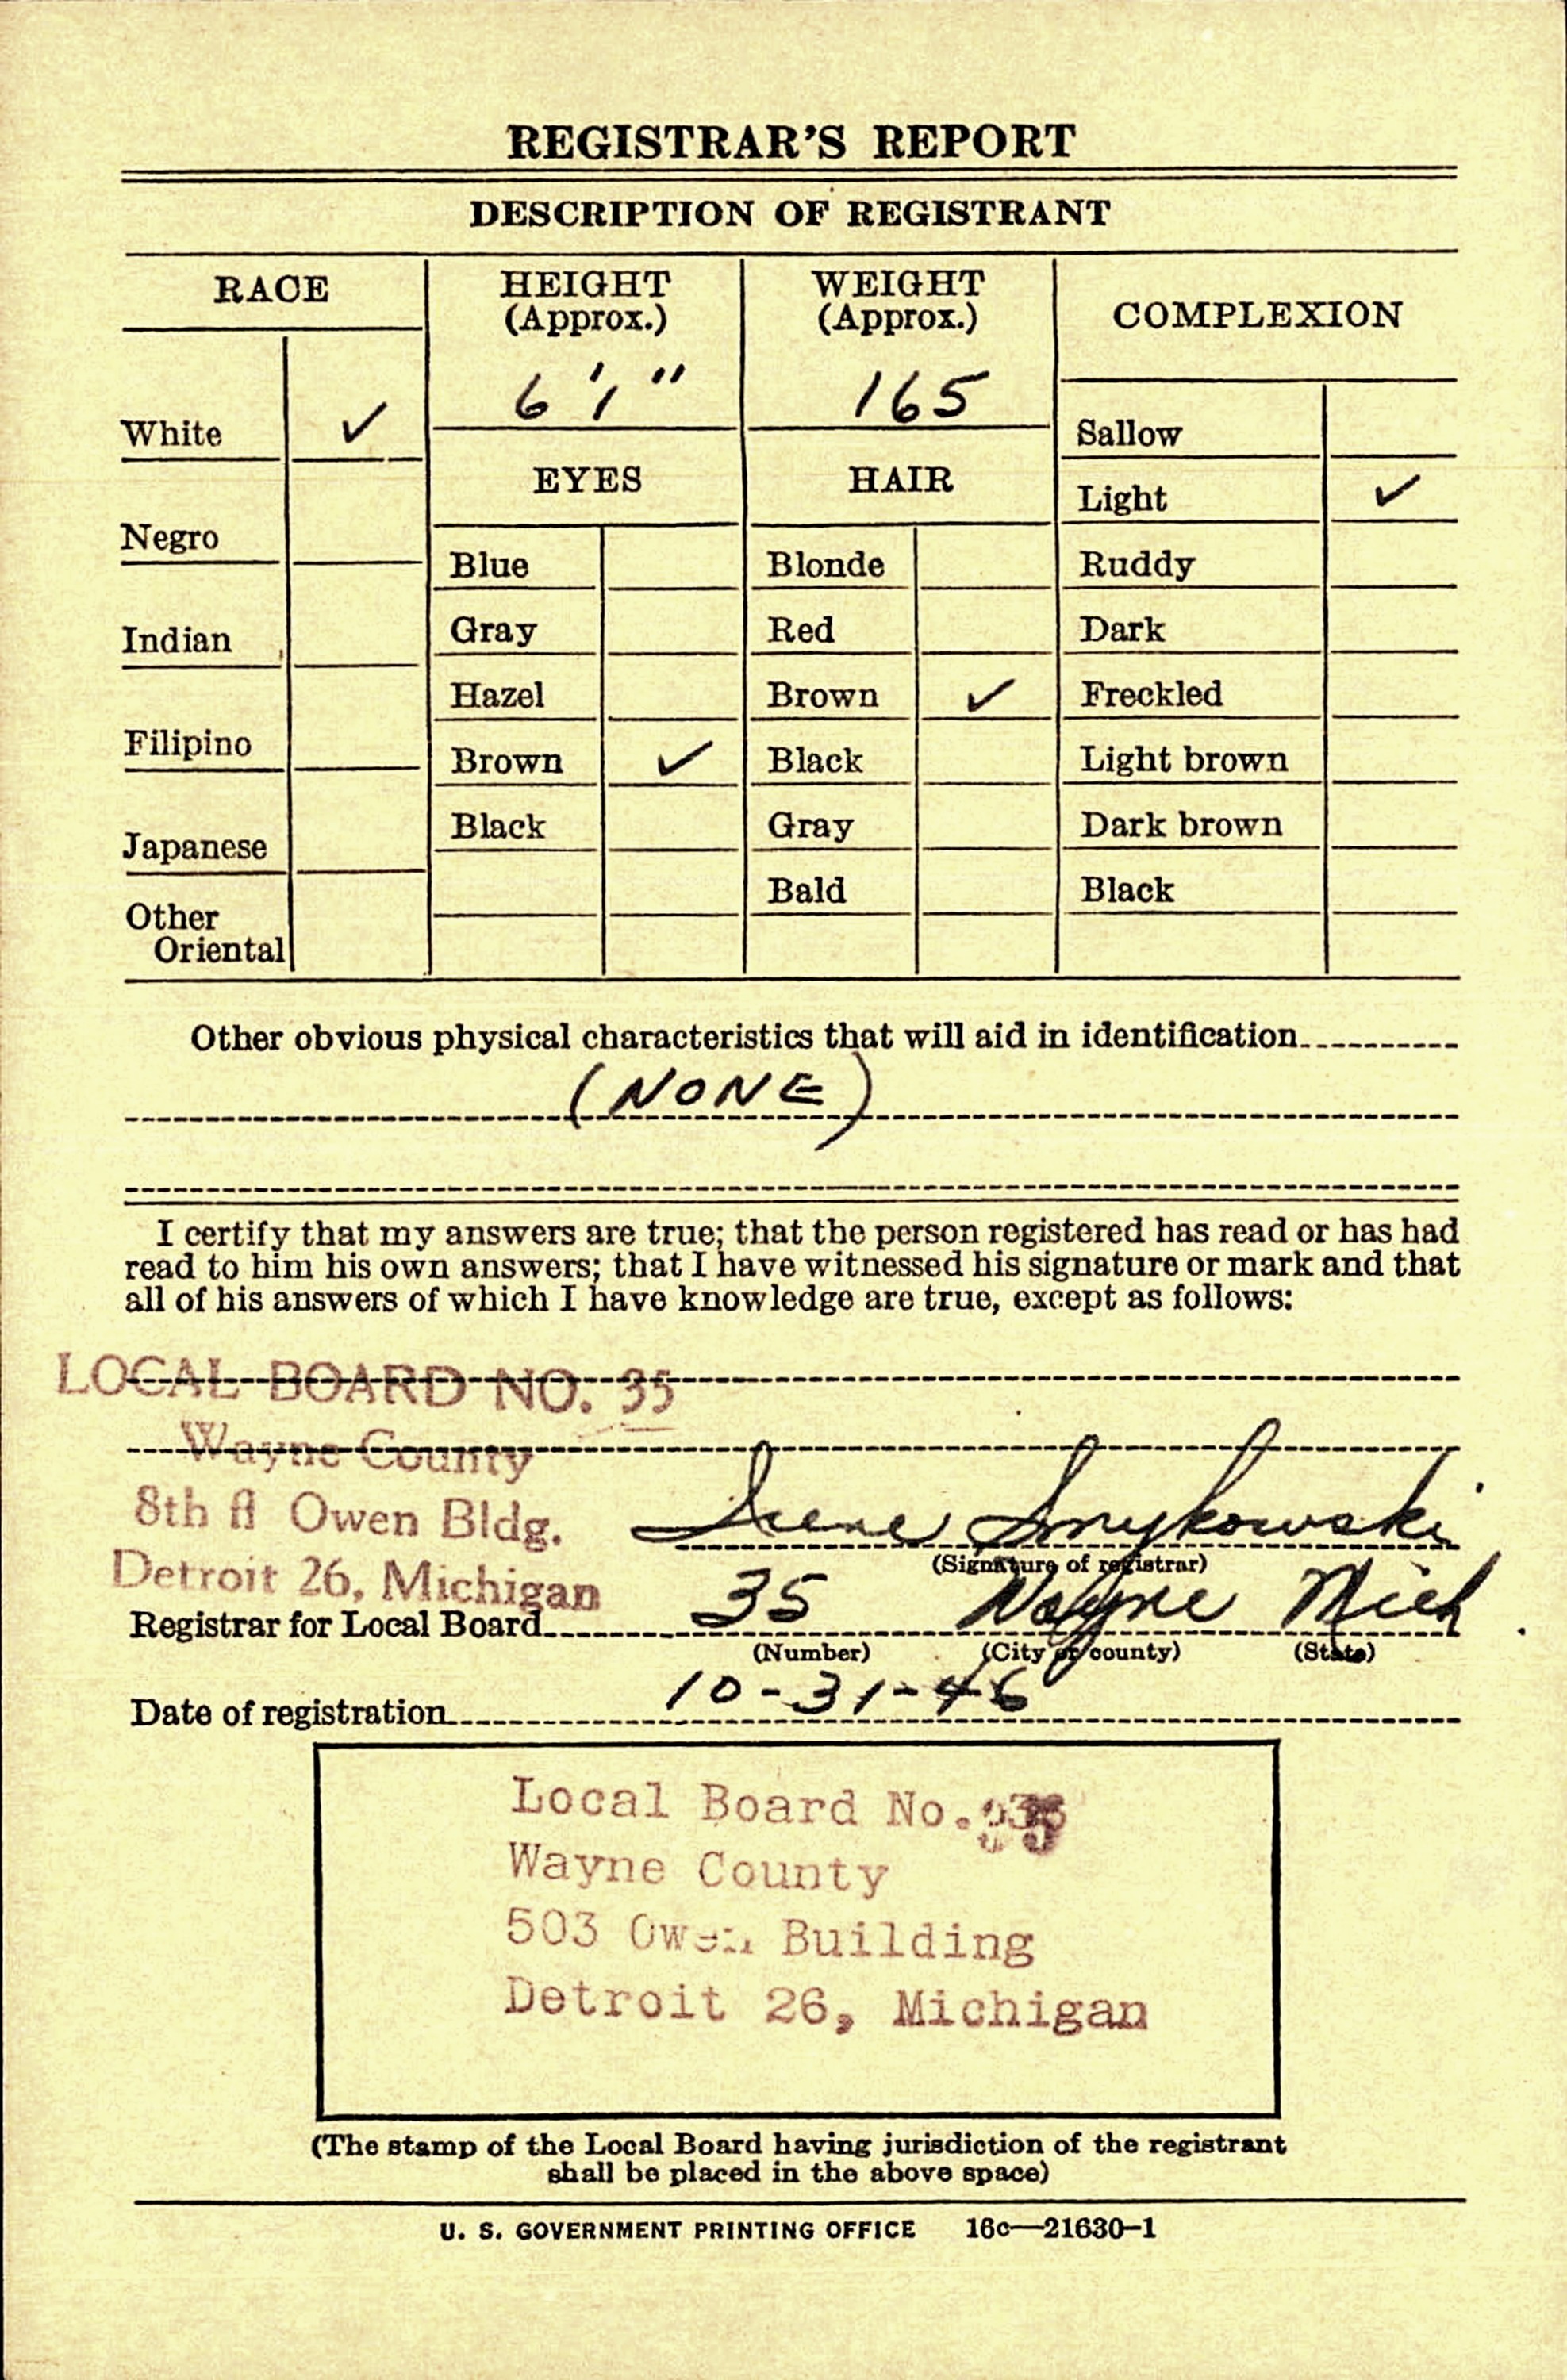 REGISTRAR'S REPORT
DESCRIPTION OF REGISTRANT
RACE
HEIGHT
(Approx.)
WEIGHT
(Approx.)
COMPLEXION
6'1"
165
White ✓
Sallow
EYES
HAIR
Light ✓
Negro
Blue
Blonde
Ruddy
Indian
Gray
Red
Dark
Hazel
Brown ✓
Freckled
Filipino
Brown ✓
Black
Light brown
Japanese
Black
Gray
Dark brown
Bald
Black
Other
Oriental
Other obvious physical characteristics that will aid in identification
(NONE)
I certify that my answers are true; that the person registered has read or has had
read to him his own answers; that I have witnessed his signature or mark and that
all of his answers of which I have knowledge are true, except as follows:
LOCAL BOARD NO. 35
Wayne County
8th fl Owen Bldg.
Detroit 26, Michigan
Irene Smykowski
(Signature of registrar)
Registrar for Local Board 35 Wayne Mich
(Number) (City or county) (State)
Date of registration 10-31-46
Local Board No. 35
Wayne County
503 Owen Building
Detroit 26, Michigan
(The stamp of the Local Board having jurisdiction of the registrant
shall be placed in the above space)
U. S. GOVERNMENT PRINTING OFFICE 16c—21630-1